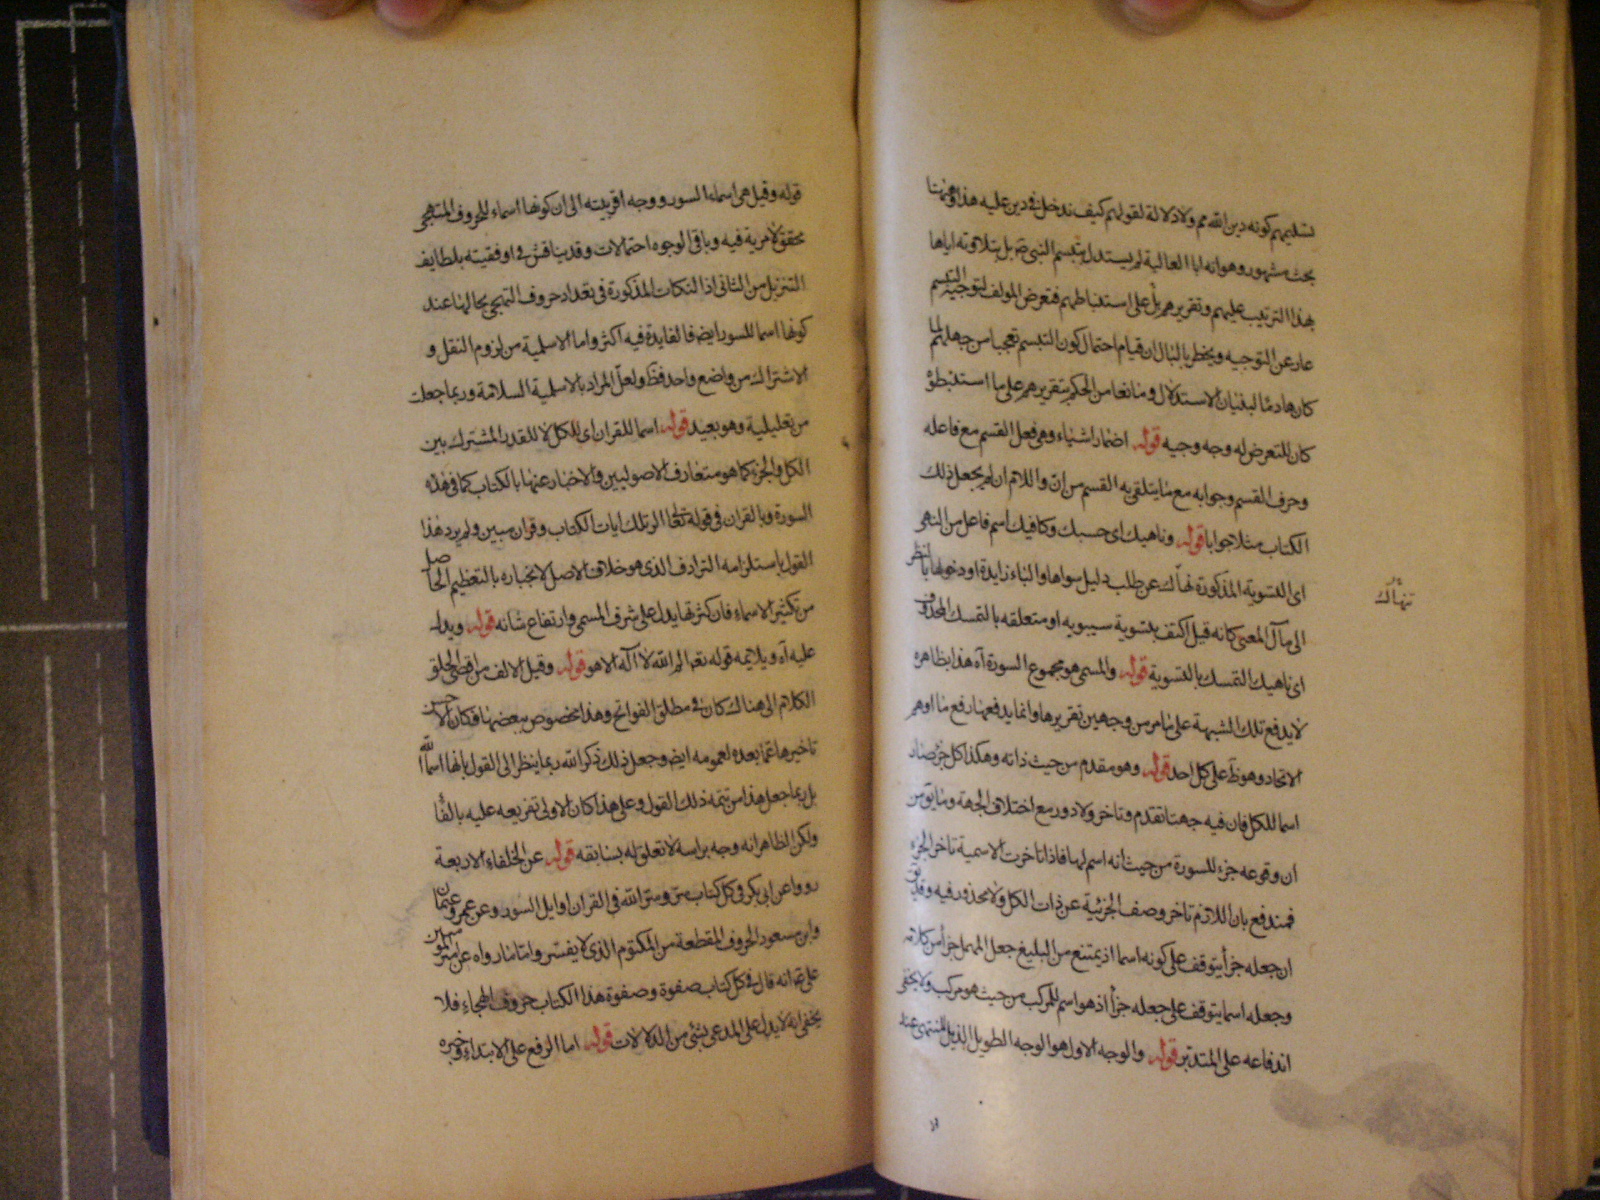 تسليمهم كونه دين الله مم ولا دلالة لقولهم كيف ندخل في دين عليه هذا وههنا
بحث مشهور وهو انه اما العالية لم يستدل بتبسم النبى صم بل بتلاوته اياها
بهذا الترتيب عليهم وتقريرهم بل على استنباطهم فتعرض المولف لتوجيه التبسم
عار عن التوجيه ويخطر بالبال ان قيام احتمال كون التبسم تعجبا من جهلهم لما
كان هادما لبنيان الاستدلال ومانعا من الحكم بتقريرهم على ما استنبطوه
كان للتعرض له وجه وجيه قوله اضمار اشياء وهى فعل القسم مع فاعله
وحرف القسم وجوابه مع ما يتلقى به القسم من انّ واللام ان لم يجعل ذلك
الكتاب مثلا جوابا قوله وناهيك اى حسبك وكافيك اسم فاعل من النهى
اى التسوية المذكورة نهاك عن طلب دليل سواها والباء زايدة او دخولها بالنظر
تنهاك
الى مآل المعنى كانه قيل اكتف بتسوية سيبويه او متعلقه بالتمسك المحذوف
اى ناهيك التمسك بالتسوية قوله والمسمى هو مجموع السورة اه هذا بظاهره
لا يدفع تلك الشبهة على ما مر من وجهين تقريرها وانما يدفعها رفع ما اوهم
الاتحاد وهو ظ على كل احد قوله وهو مقدم من حيث ذاته وهكذا كل جزء صار
اسما للكل فان فيه جهتا تقدم وتاخر ولا دور مع اختلاف الجهة وما يق من
ان وقوعه جزء للسورة من حيث انه اسم لها فاذا تاخرت الاسمية تاخر الجزء
فمندفع بان اللازم تاخر وصف الجزئية عن ذات الكل ولا محذور فيه وقد يق
ان جعله جزأ يتوقف على كونه اسما اذ يمتنع من البليغ جعل المهمل جزأ من كلامه
وجعله اسما يتوقف على جعله جزأ اذ هو اسم للمركب من حيث هو مركب ولا يخفى
اندفاعه على المتدبر قوله والوجه الاول هو الوجه الطويل الذيل المنتهى عنده
قوله وقيل هى اسماء السور ووجه اقربيته الى ان كونها اسماء للحروف المتهجى
محقق لا مرية فيه وباقى الوجوه احتمالات وقد يناقش فى اوفقيته بلطايف
التنزيل من الثانى اذ النكات المذكورة فى تعداد حروف التهجى بحالها عند
كونها اسما للسور ايض فالفايدة فيه اكثر واما الاسلمية من لزوم النقل و
الاشتراك من واضع واحد فظ ولعل المراد بالاسلمية السلامة وربما جعلت
من تعليلية وهو بعيد قوله اسما للقران اى للكل لا للقدر المشترك بين
الكل والجزء كما هو متعارف الاصوليين والاخبار عنها بالكتاب كما فى هذه
السورة وبالقران فى قوله تعالى الر تلك ايات الكتاب وقران مبين ولم يرد هذا
القول باستلزامه الترادف الذى هو خلاف الاصل لانجباره بالتعظيم الحاصل
من تكثير الاسماء فان كثرتها يدل على شرف المسمى وارتفاع شانه قوله ويدل
عليه اه ويلايمه قوله تعم الم الله لا اله الا هو قوله وقيل الالف من اقصى الحلق
الكلام الى هناك كان فى مطلق الفواتح وهذا مخصوص ببعضها فكان الاحسن
تاخيرها عما بعده لعمومه ايض وجعل ذلك ذكر الله ربما ينظر الى القول بانها اسماء الله
بل ربما جعل هذا من تتمة ذلك القول وعلى هذا كان الاولى تفريعه عليه بالفا
ولكن الظاهر انه وجه براسه لا تعلق له بسابقه قوله عن الخلفاء الاربعة
رووا عن ابى بكر فى كل كتاب سر وسر الله فى القران اوايل السور وعن عمر وعثمان
وابن مسعود الحروف المقطعة من المكتوم الذى لا يفسر واما ما رواه عن امير المومنين
على ع انه قال فى كل كتاب صفوة وصفوة هذا الكتاب حروف الهجاء فلا
يخفى انه لا يدل على المدعى بشئ من الدلالات قوله اما الرفع على الابتداء وخبره